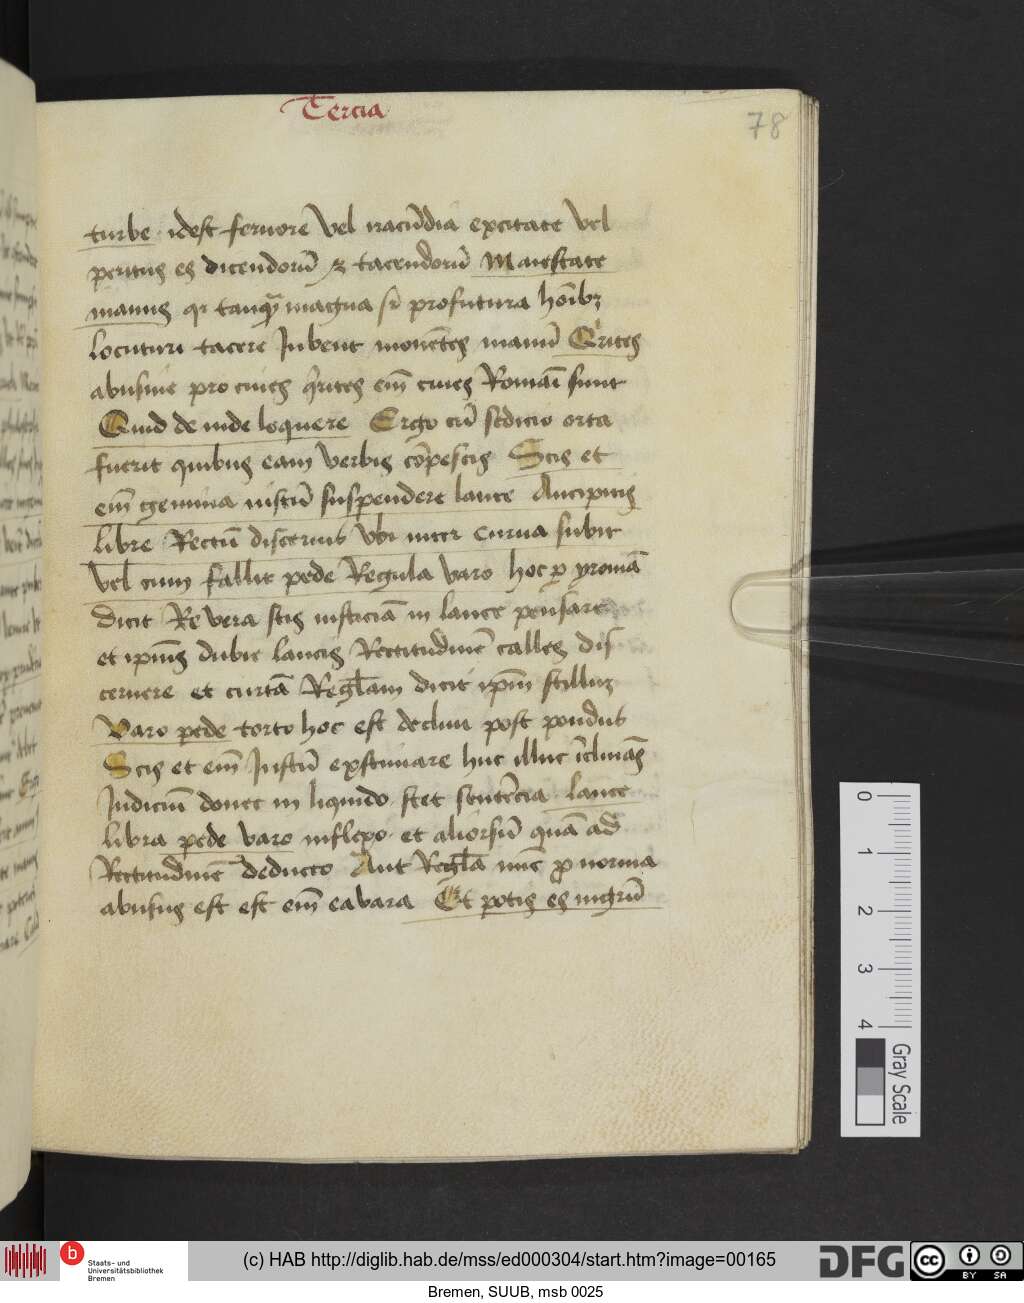 Tercia
78
turbe idest feruorē vel iracūdiā excitate vel
peritus es dicendorū & tacendorū Maiestate
manus qr tanqͣ magna sr̄ profutura hoībꝫ
locuturi tacere Jubent mouētes manū Qͥrites
abusiue pro ciues qͥrites em̄ ciues Romaī sunt
Quid de inde loquere Ergo cū sedicio orta
fuerit quibus eam verbis cōpescis Scis et
em̄ gemina iustū suspendere lance Ancipitis
libre Rectū discernis vbi inter curua subit
vel cum fallit pede Regula varo hoc ꝑ yroniā
dicit Re vera scis iusticiā in lance pensare
et ip̄ius dubie lancis Rectitudinē calles dis
cernere et curtā Regl̄am dicit ip̄m
varo pede torto hoc est decliui post pondus
Scis et em̄ Justū existimare huc illuc īclinās
Judiciū donec in liquido stet sentēcia lance
libra pede varo inflexo et aliorsū quā ad
Rectitudinē deducto Aut Regl̄a nūc ꝓ norma
abusus est est em̄ ea vara Et potis es nigrū
0 1 2 3 4
Gray Scale
Staats- und
Universitätsbibliothek
Bremen
(c) HAB http://diglib.hab.de/mss/ed000304/start.htm?image=00165
DFG
cc BY SA
Bremen, SUUB, msb 0025